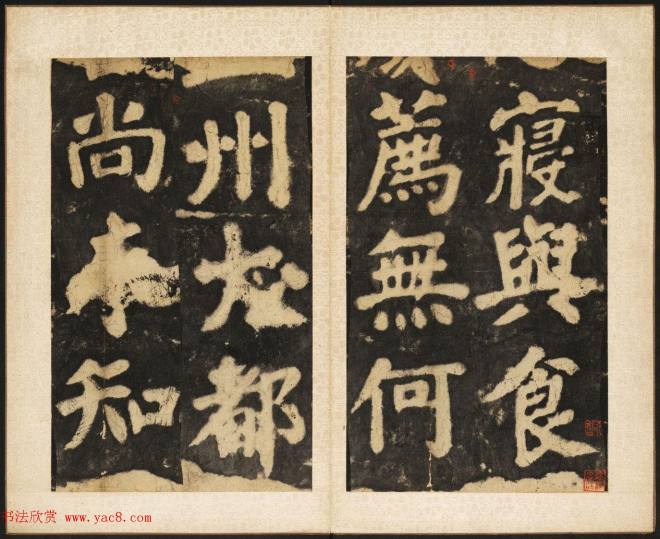 寢與食
薦無何
州大都
尚未知
书法欣赏 www.yac8.com